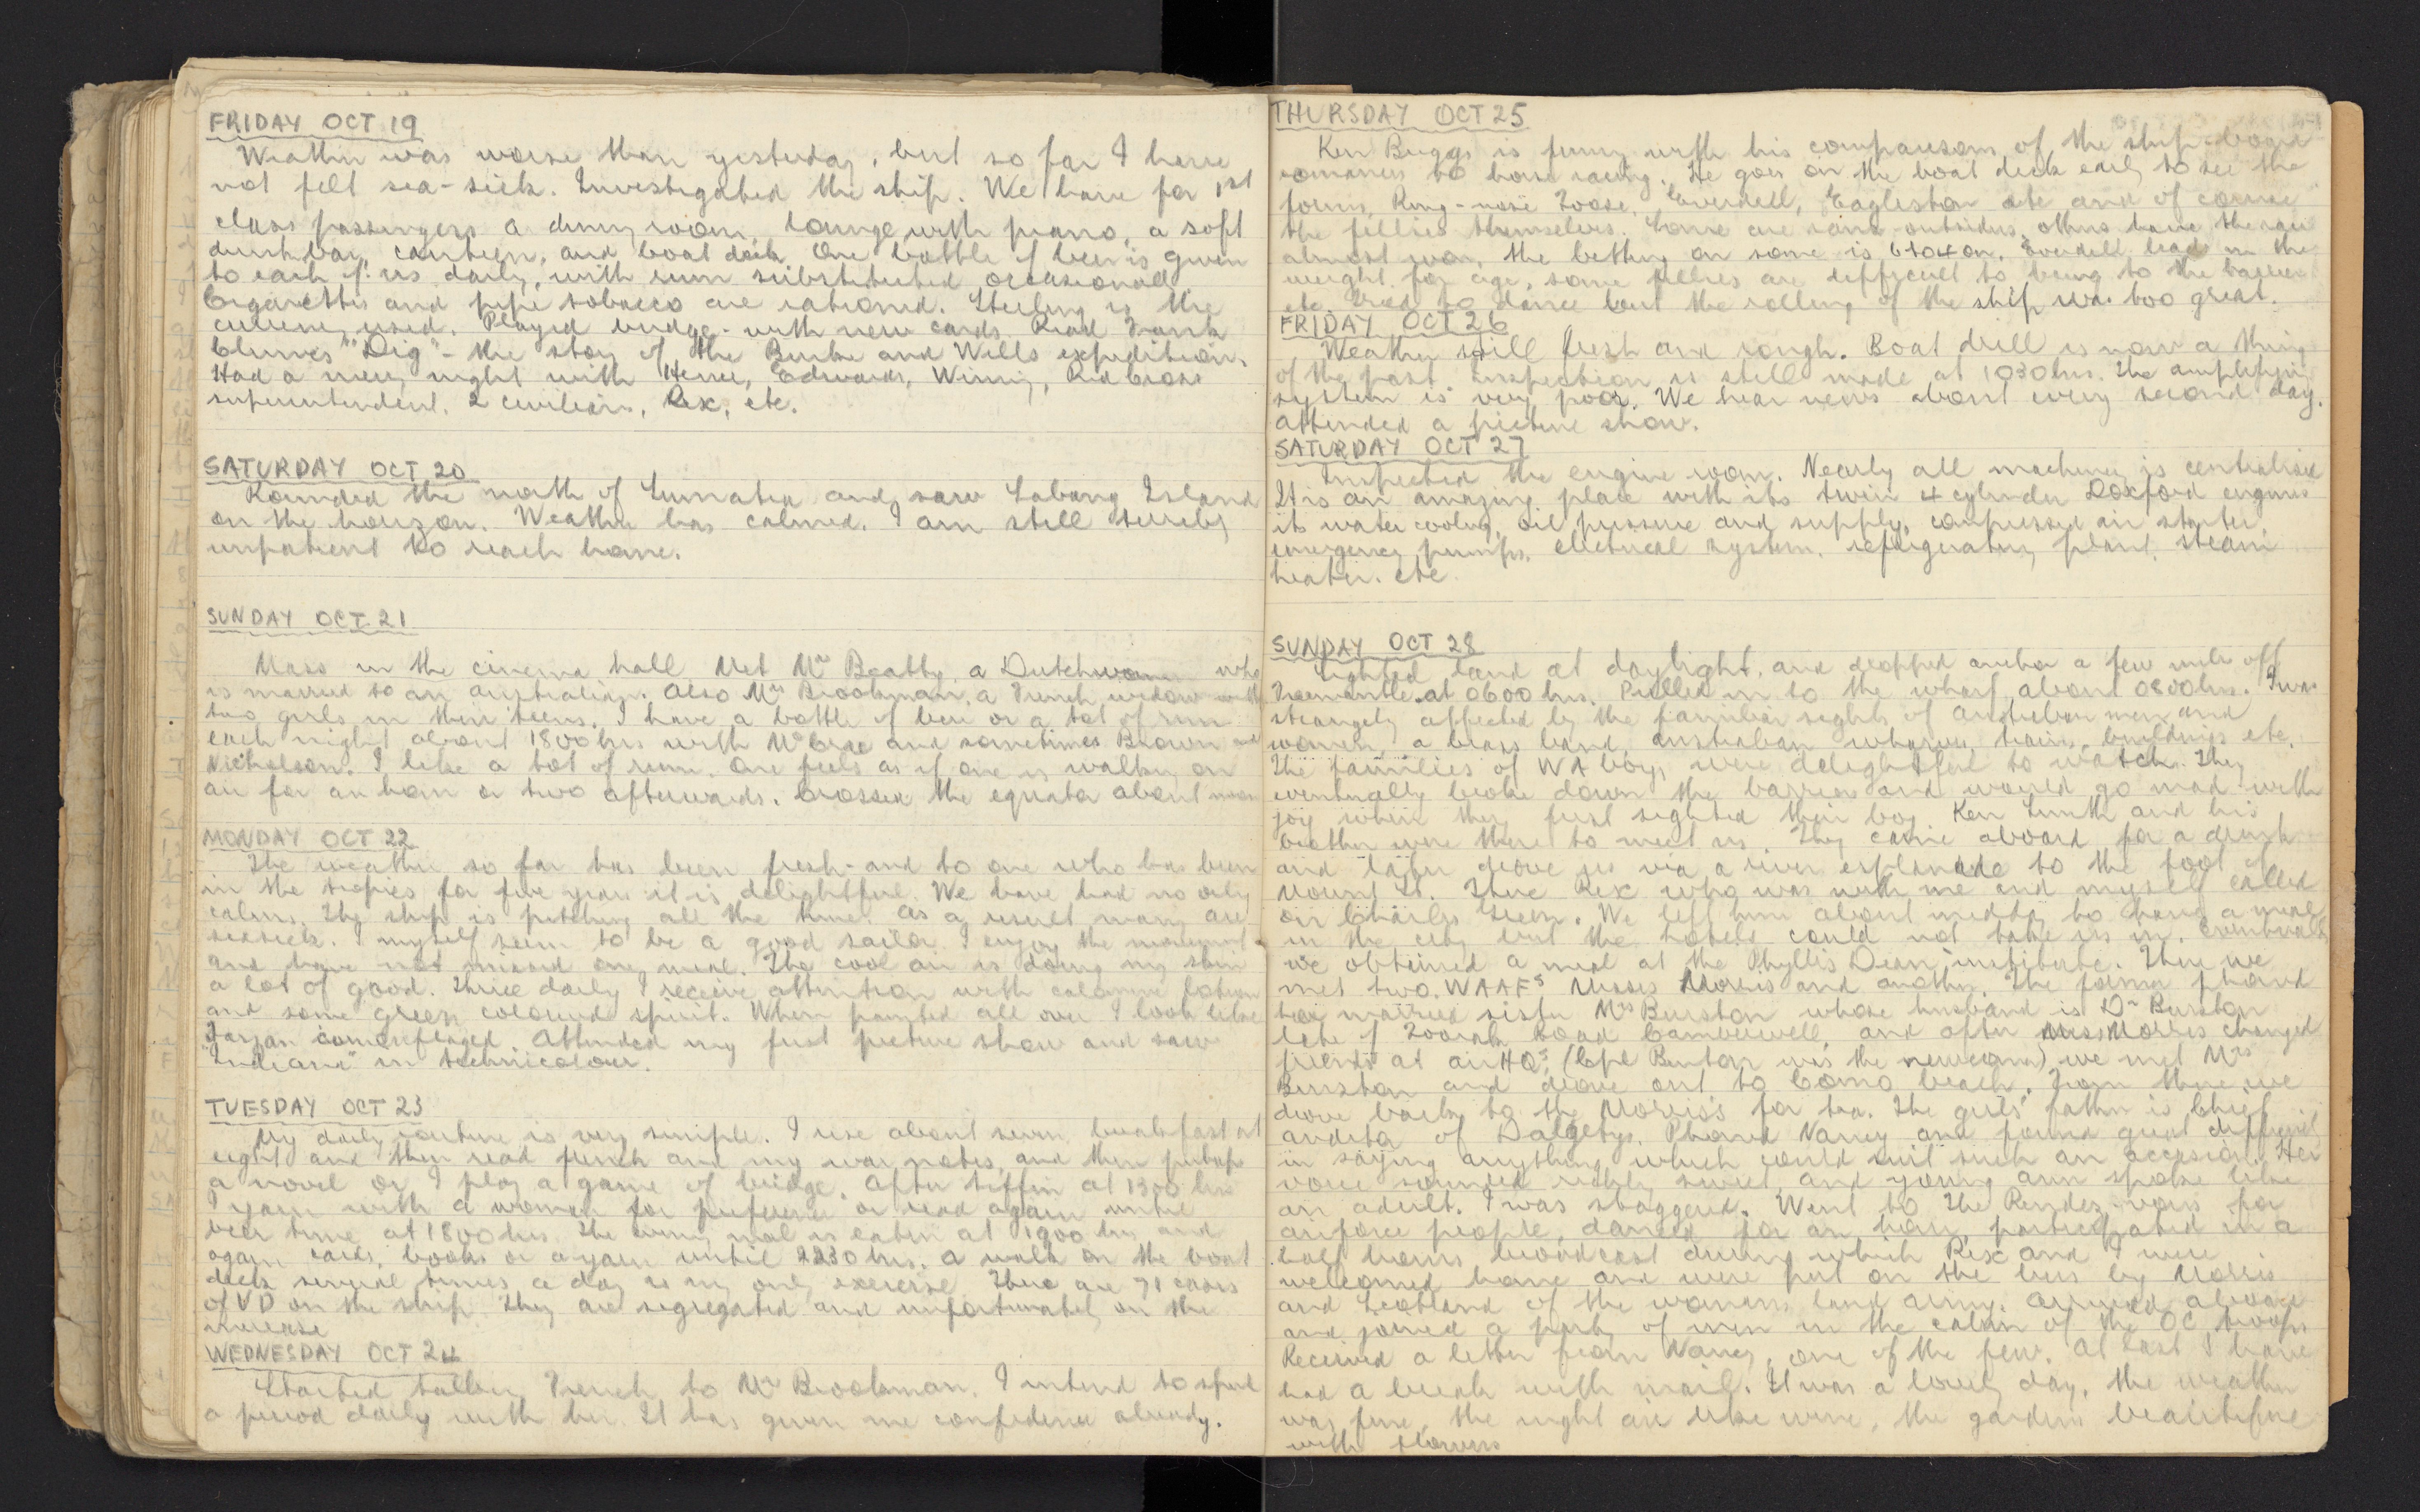 FRIDAY OCT 19
Weather was worse than yesterday, but so far I have
not felt sea-sick. Investigated the ship. We have for 1st
class passengers a dining room, lounge with piano, a soft
drink bar, canteen, and boat deck. One bottle of beer is given
to each of us daily, with rum substituted occasionally
Cigarettes and pipe tobacco are rationed. Sterling is the
currency used. Played bridge - with new cards. Read Frank
Clunes "Dig" - the story of the Burke and Wills expedition.
Had a merry night with Edwards, Winning, Red Cross
superintendent, 2 civilians, Rex, etc.
SATURDAY OCT 20
Rounded the north of Sumatra and saw Sabang Island
on the horizon. Weather has calmed. I am still terribly
impatient to reach home.
SUNDAY OCT 21
Mass in the cinema hall. Met Mrs Beatty, a Dutchwoman who
is married to an Australian. Also Mrs Brookman, a French widow with
two girls in their teens. I have a bottle of beer or a tot of rum
each night about 1800 hrs with McCrae and sometimes Brown and
Nicholson. I like a tot of rum. One feels as if one is walking on
air for an hour or two afterwards. Crossed the equator about noon
MONDAY OCT 22
The weather so far has been fresh - and to one who has been
in the tropics for five years it is delightful. We have had no oily
calms. The ship is pitching all the time. As a result many are
seasick. I myself seem to be a good sailor. I enjoy the movement
and have not missed one meal. The cool air is doing my skin
a lot of good. Thrice daily I receive attention with calamine lotion
and some green coloured spirit. When painted all over I look like
Tarzan camouflaged. Attended my first picture show and saw
"Indiana" in technicolour.
TUESDAY OCT 23
My daily routine is very simple. I rise about seven, breakfast at
eight and then read french and my war notes, and then perhaps
a novel or I play a game of bridge. After tiffin at 1300 hrs
I yarn with a woman for preference or read again until
beer time at 1800 hrs. The evening meal is eaten at 1900 hrs and
again cards, books or a yarn until 2230 hrs. A walk on the boat
deck several times a day is my only exercise. There are 71 cases
of VD on the ship. They are segregated and unfortunately on the
increase
WEDNESDAY OCT 24
Started talking French to Mrs Brookman. I intend to spend
a period daily with her. It has given me confidence already.
THURSDAY OCT 25
Ken Burggs is funny with his comparisons of the ship-board
romances to horse racing. He goes on the boat deck early to see the
forms, Ring-nose Toose, Everdell, Eagleston etc and of course
the fillies themselves. Some are rank-outsiders, others have the race
almost won, the betting on some is 6 to 4 on. Everdell leads in the
weight for age, some fillies are difficult to bring to the barrier
etc. Tried to dance but the rolling of the ship was too great.
FRIDAY OCT 26
Weather still fresh and rough. Boat drill is now a thing
of the past. Inspection is still made at 1030 hrs. The amplifying
system is very poor. We hear news about every second day.
Attended a picture show.
SATURDAY OCT 27
Inspected the engine room. Nearly all machinery is centralised
It is an amazing place with its twin 4 cylinder Doxford engines
its water cooling, oil pressure and supply, compressed air starter,
emergency pumps, electrical system, refrigerating plant, steam
heater, etc
SUNDAY OCT 28
Sighted land at daylight, and dropped anchor a few miles off
Fremantle at 0600 hrs. Pulled in to the wharf about 0800 hrs. I was
strangely affected by the familiar sights of Australian men and
women, a brass band, Australian wharves, trains, buildings etc.
The families of WA boys were delightful to watch. They
eventually broke down the barrier and would go mad with
joy when they first sighted their boy. Ken Smith and his
brother were there to meet us. They came aboard for a drink
and later drove us via a river esplanade to the foot of
Mount St. There Rex who was with me and myself called
on Charles Green. We left him about midday to have a meal
in the city but the hotels could not take us in. Eventually
we obtained a meal at the Phyllis Dean institute. There we
met two WAAFs Misses Morris and another. The former phoned
her married sister Mrs Burston whose husband is Dr Burston
late of Toorak Road Camberwell, and after Miss Morris changed
at air HQs (Cpl Burton was the newcomer) we met Mrs
Burston and drove out to Como beach. From there we
drove back to the Morris's for tea. The girls' father is Chief
auditor of Dalgetys. Phoned Nancy and found great difficulty
in saying anything which could suit such an occasion. Her
voice sounded richly sweet and young Ann spoke like
an adult. I was staggered. Went to the Rendez-vous for
airforce people, danced for an hour, participated in a
half hours broadcast during which Rex and I were
welcomed home and were put on the bus by Morris
and Scotland of the womens land army. Arrived aboard
and joined a party of men in the cabin of the OC troops
Received a letter from Nancy, one of the few. At last I have
had a break with mail. It was a lovely day, the weather
was fine, the night air like wine, the gardens beautiful
with flowers